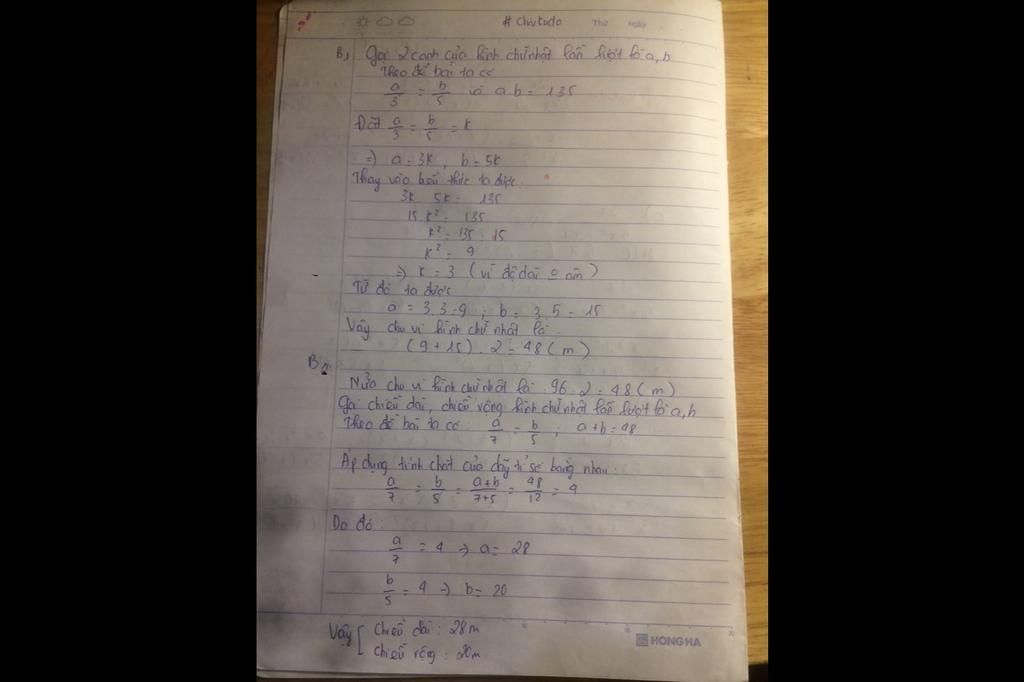 # Chủ tudo Thứ ngày
B, Gọi 2 cạnh của hình chữ nhật lần lượt là a, b
Theo đề bài ta có
a/3 = b/5 và a.b = 135
Đặt a/3 = b/5 = k
=> a = 3k, b = 5k
Thay vào biểu thức ta được
3k . 5k = 135
15 k² = 135
k² = 135 : 15
k² = 9
=> k = 3 (vì độ dài o âm)
Từ đó ta được
a = 3.3 = 9 ; b = 3.5 = 15
Vậy chu vi hình chữ nhật là
(9 + 15) . 2 = 48 (m)
B
Nửa chu vi hình chữ nhật là : 96 : 2 = 48 (m)
Gọi chiều dài, chiều rộng hình chữ nhật lần lượt là a, b
Theo đề bài ta có : a/7 = b/5 ; a + b = 48
Áp dụng tính chất của dãy tỉ số bằng nhau :
a/7 = b/5 = a+b/7+5 = 48/12 = 4
Do đó :
a/7 = 4 => a = 28
b/5 = 4 => b = 20
Vậy [ Chiều dài : 28m
Chiều rộng : 20m
HONG HA